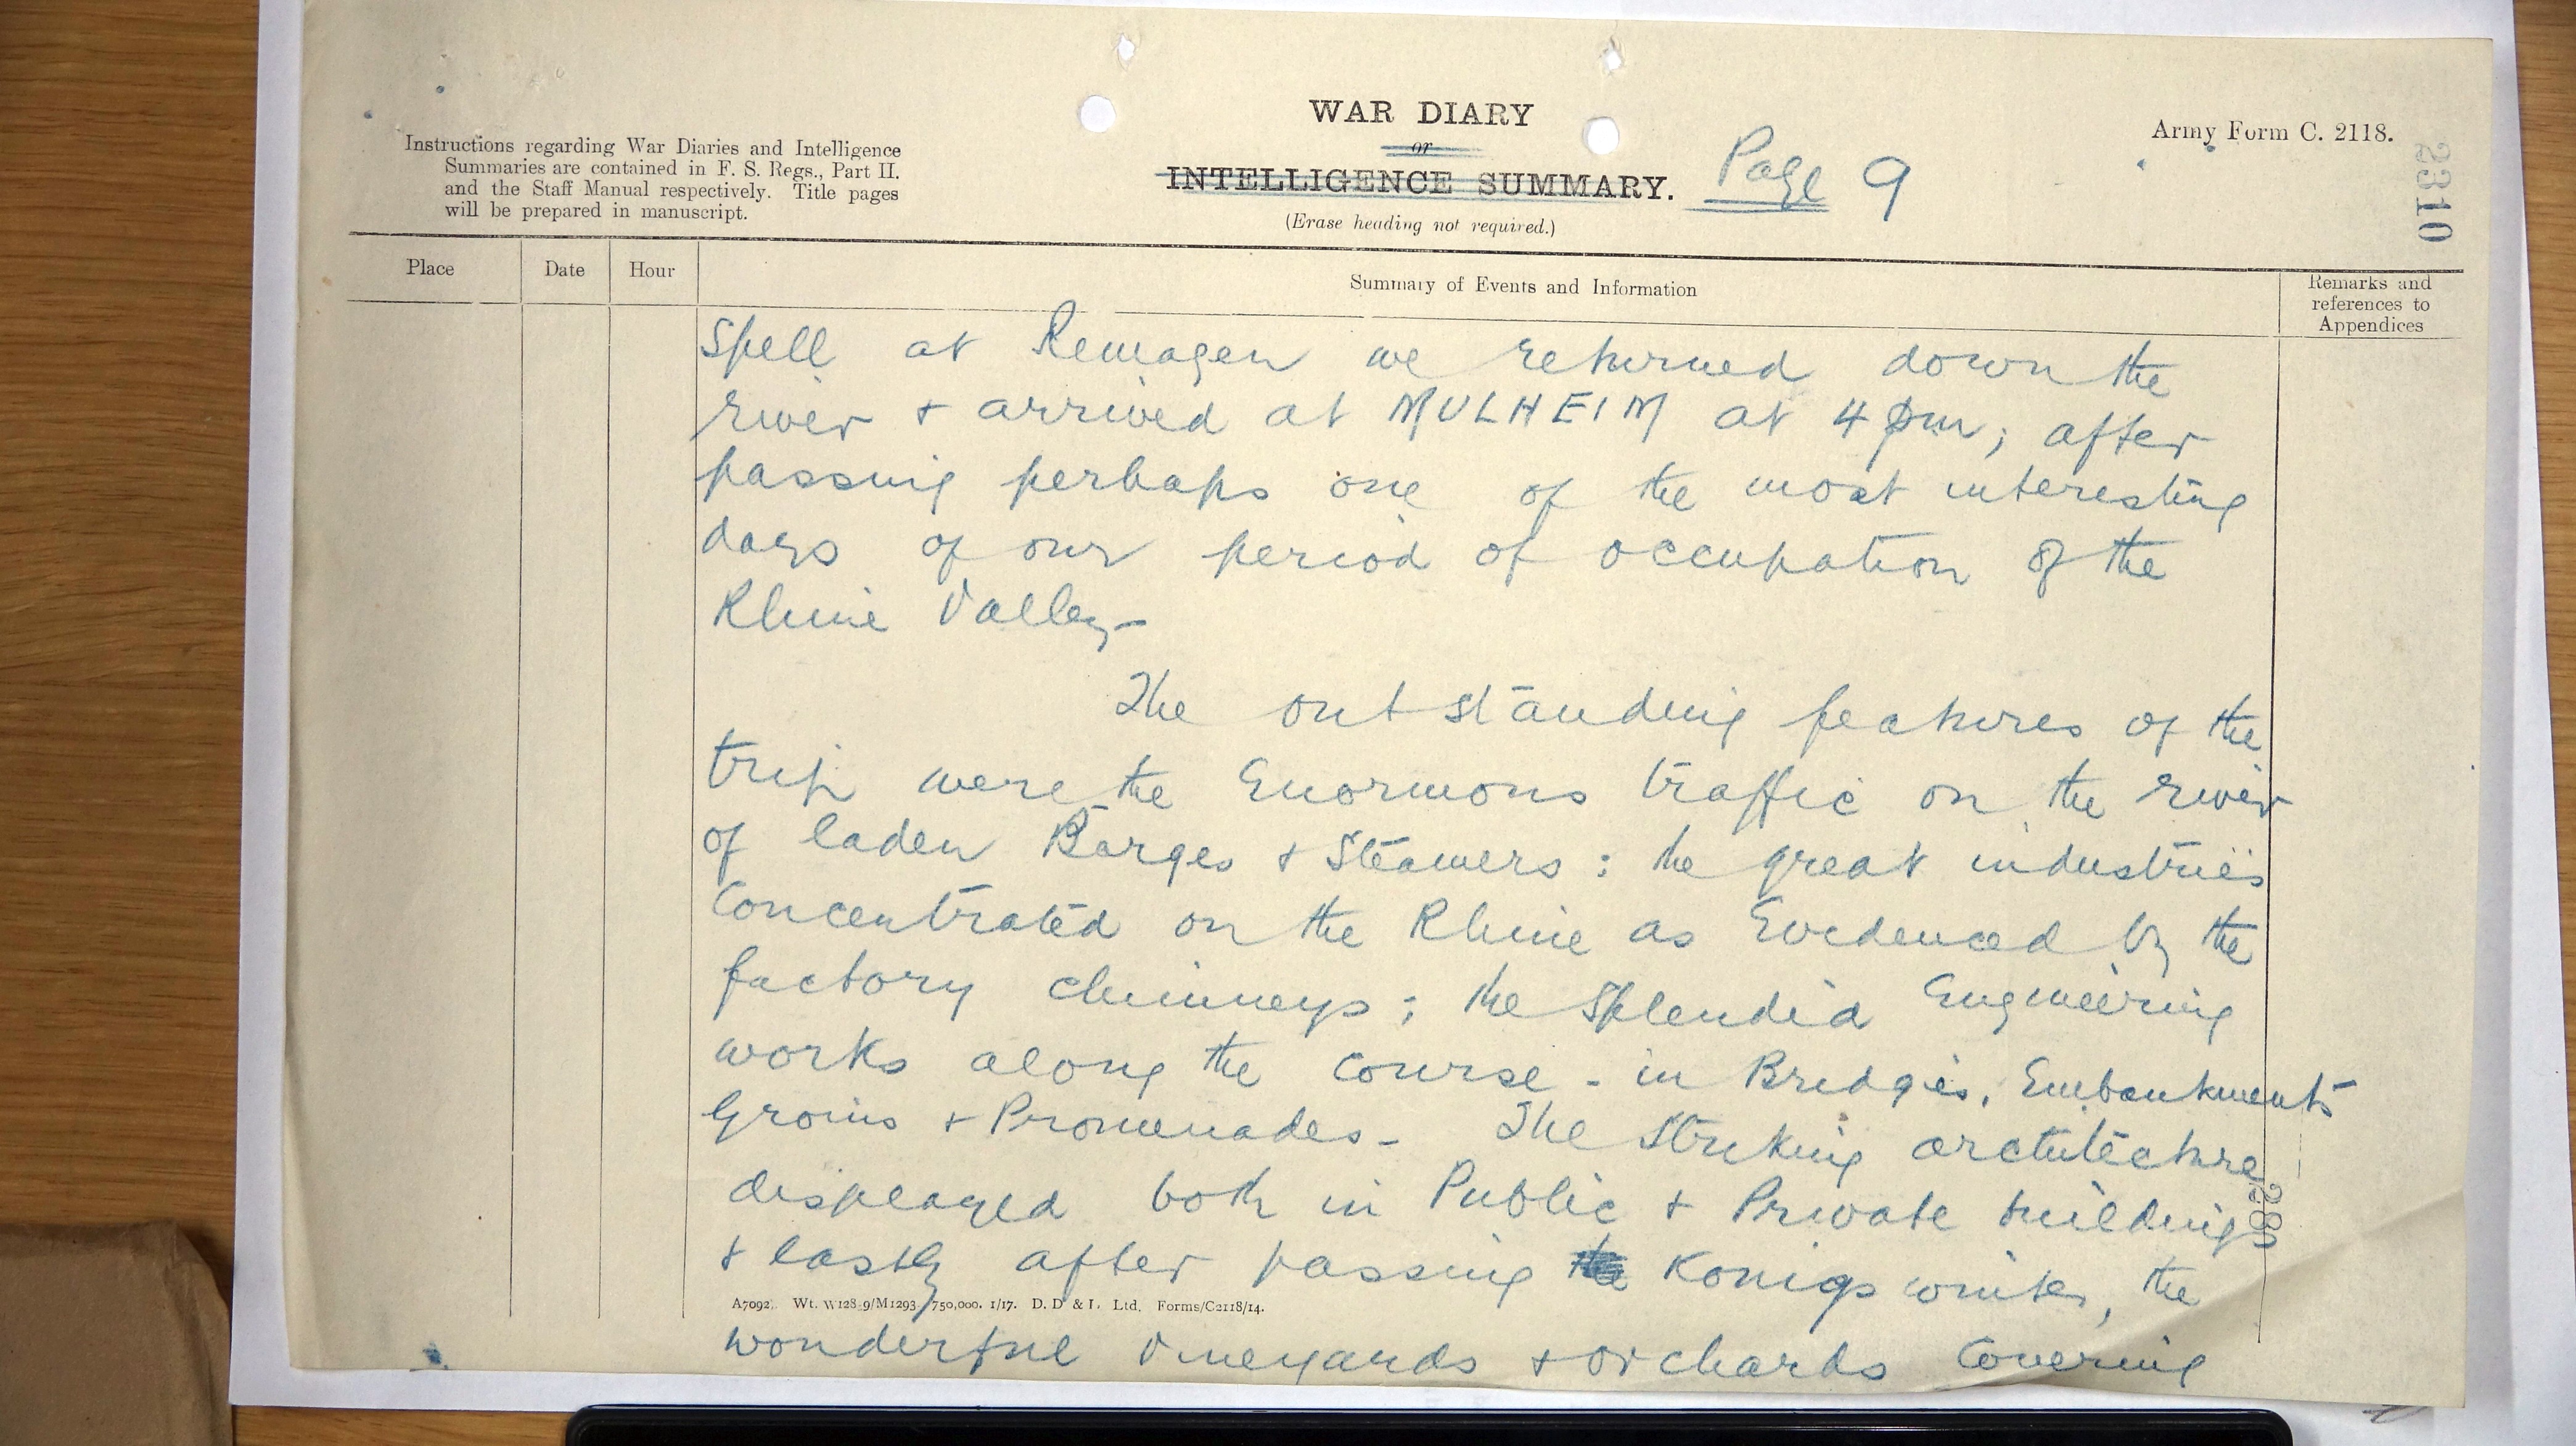 WAR DIARY
or
INTELLIGENCE SUMMARY.
(Erase heading not required.)
Page 9
Army Form C. 2118.
2310
Instructions regarding War Diaries and Intelligence
Summaries are contained in F. S. Regs., Part II.
and the Staff Manual respectively. Title pages
will be prepared in manuscript.
Place
Date
Hour
Summary of Events and Information
Remarks and
references to
Appendices
Spell at Remagen we returned down the
river + arrived at MULHEIM at 4 pm; after
passing perhaps one of the most interesting
days of our period of occupation of the
Rhine Valley-
The outstanding features of the
trip were the Enormous traffic on the river
of laden Barges + Steamers : the great industries
Concentrated on the Rhine as Evidenced by the
factory chimneys ; the Splendid Engineering
works along the course - in Bridges, Embankments
Groins + Promenades - The Striking architecture
displayed both in Public + Private buildings
+ lastly after passing the Konigswinter, the
wonderful Vineyards + Orchards Covering
A7092. Wt. W128.9/M1293 750,000. 1/17. D. D & L. Ltd. Forms/C2118/14.